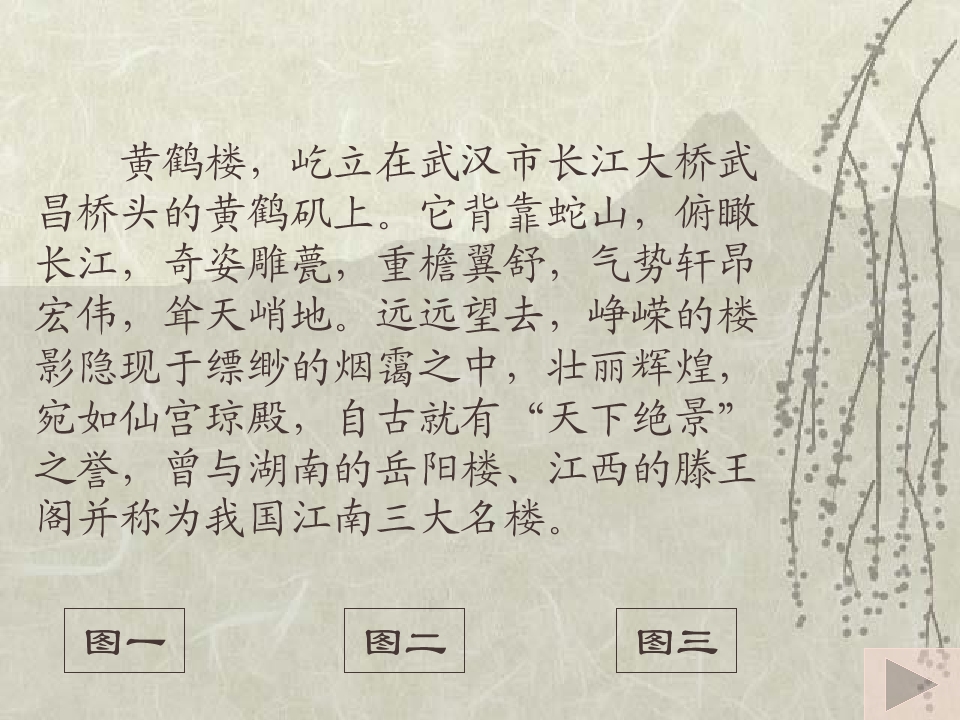 黄鹤楼，屹立在武汉市长江大桥武
昌桥头的黄鹤矶上。它背靠蛇山，俯瞰
长江，奇姿雕甍，重檐翼舒，气势轩昂
宏伟，耸天峭地。远远望去，峥嵘的楼
影隐现于缥缈的烟霭之中，壮丽辉煌，
宛如仙宫琼殿，自古就有“天下绝景”
之誉，曾与湖南的岳阳楼、江西的滕王
阁并称为我国江南三大名楼。
图一
图二
图三